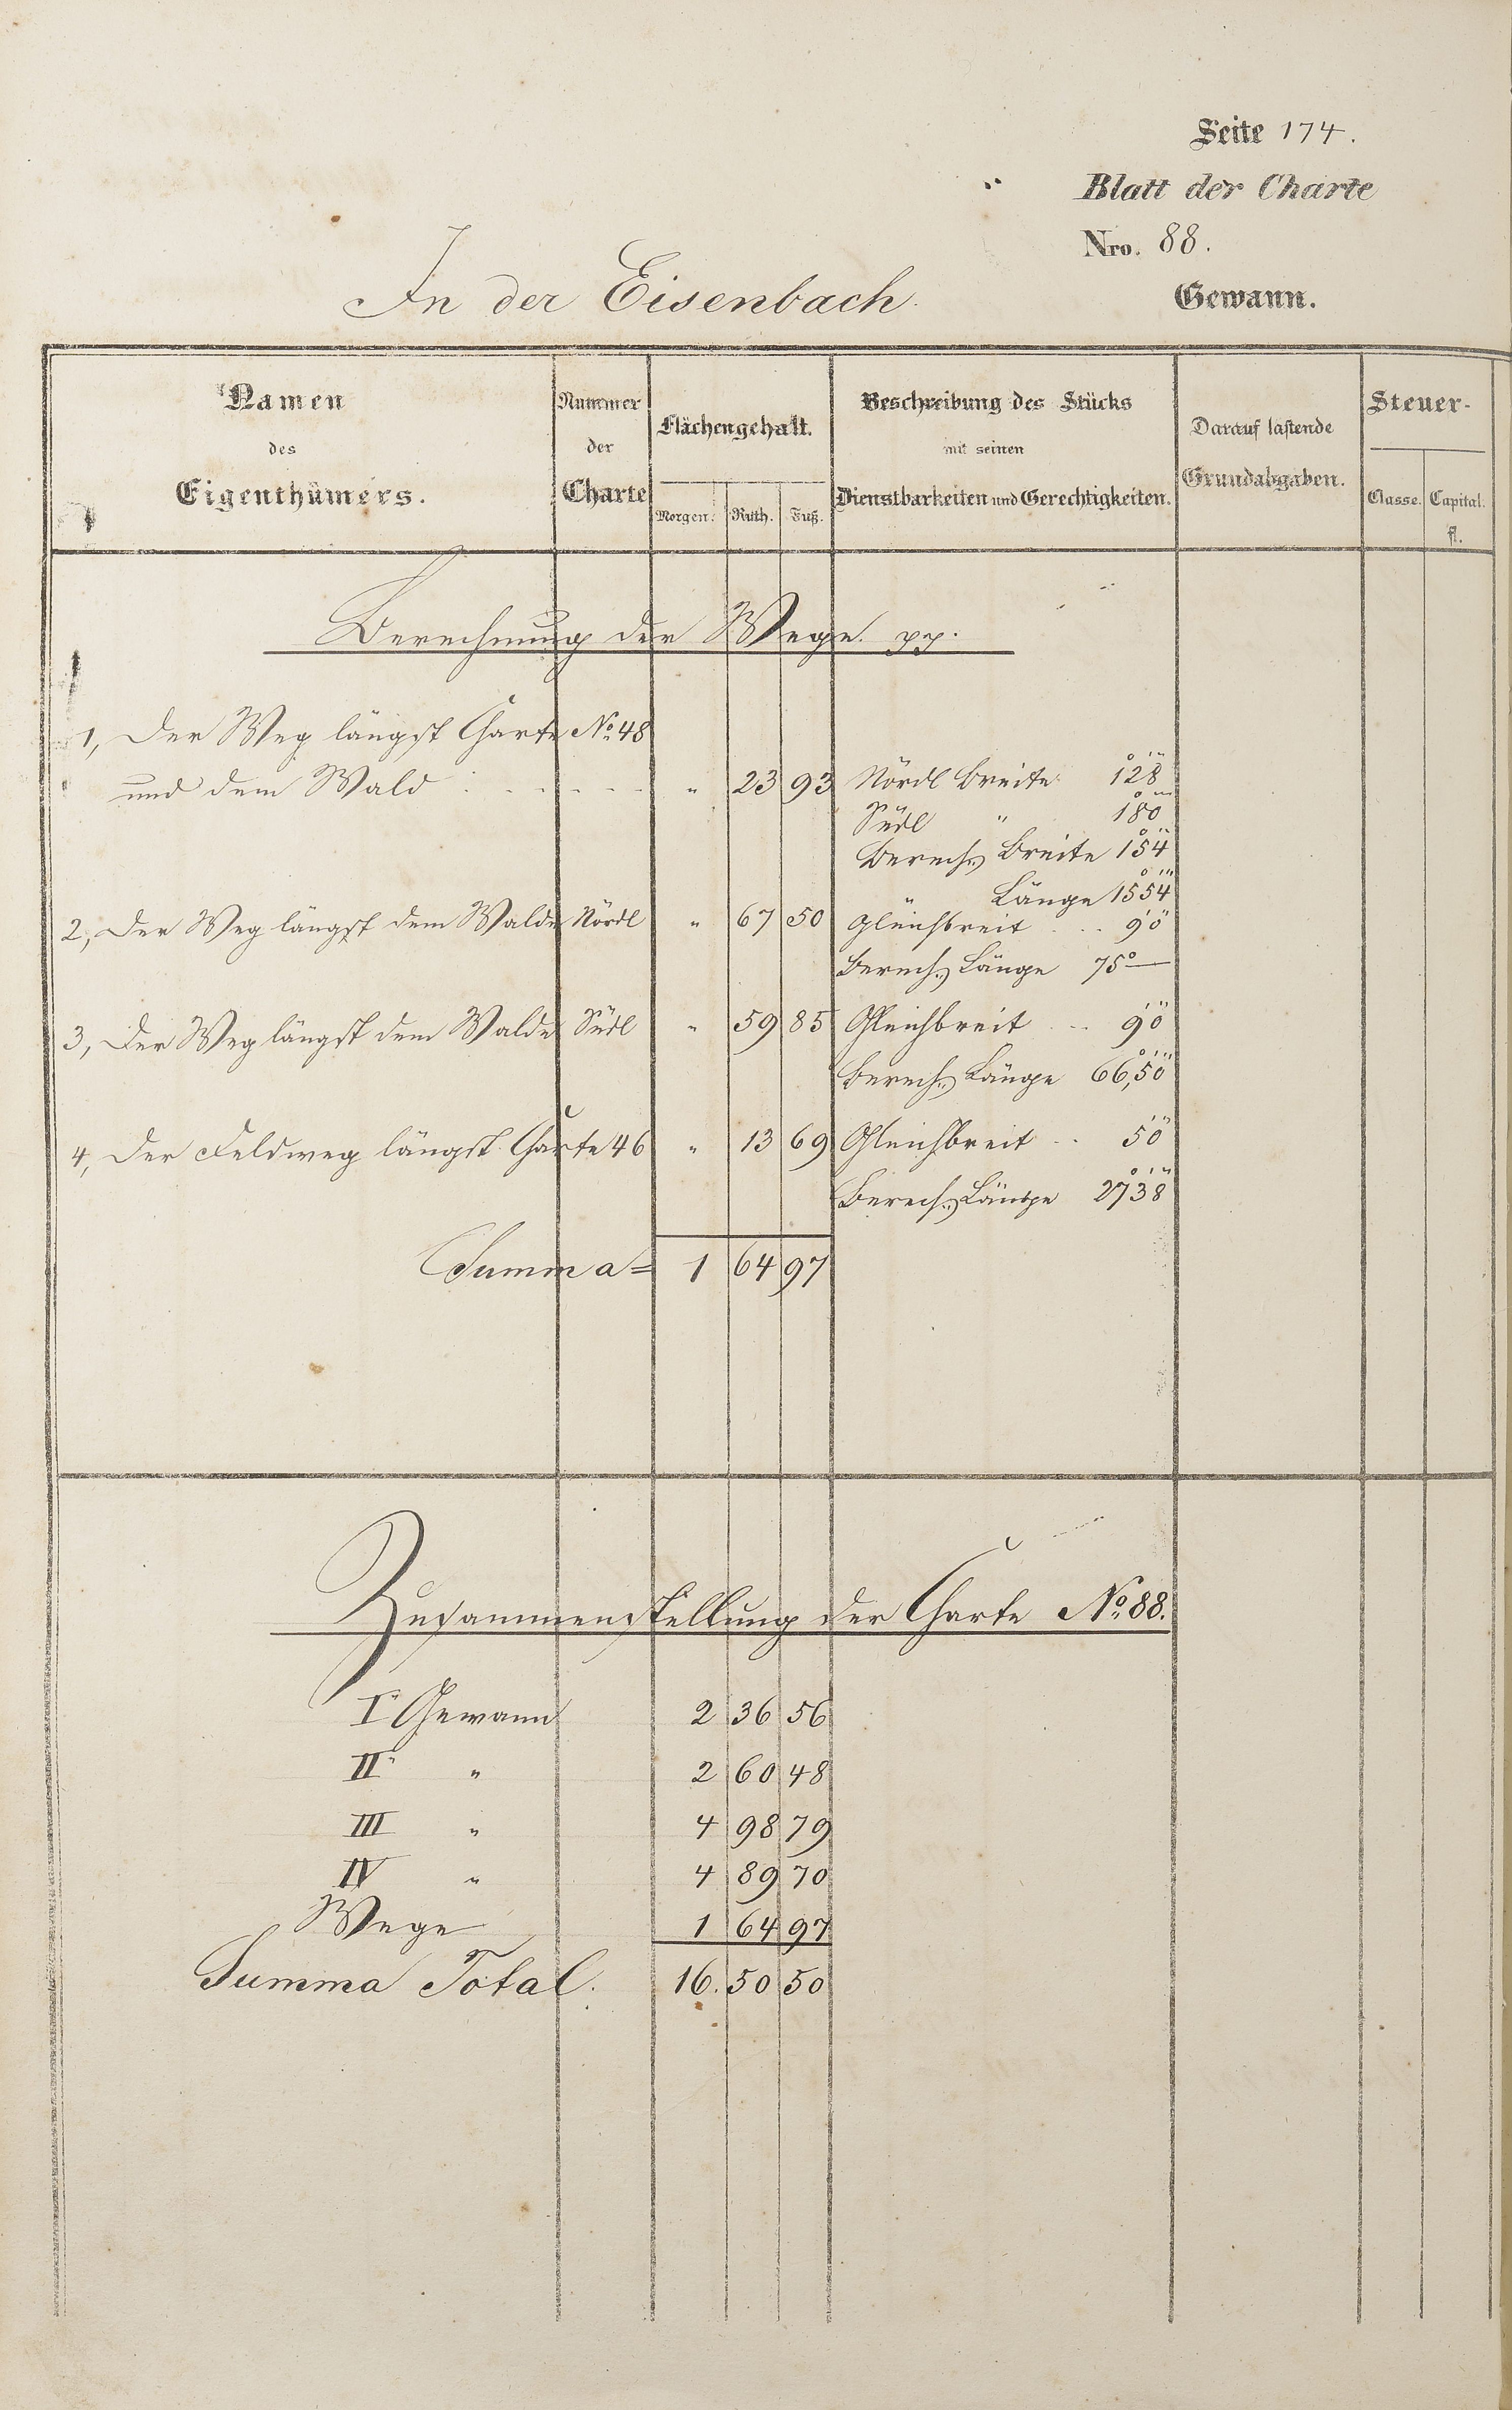 Seite 174.
Blatt der Charte
Nro. 88.
In der Eisenbach. Gewann.
Namen des Eigenthümers.
Nummer der Charte
Flächengehalt.
Morgen. Ruth. Fuß.
Beschreibung des Stücks mit seinen Dienstbarkeiten und Gerechtigkeiten.
Darauf lastende Grundabgaben.
Steuer-
Classe. Capital.
fl.
Berechnung der Wege. pp.
1, Der Weg längst Charte No. 48
und dem Wald . . . . . . „ 23 93 Nördl Breite 1° 2' 8''
Südl „ 1° 8' 0''
Berech. Breite 1° 5' 4''
Länge 15° 5' 4''
2, Der Weg längst dem Walde Nördl „ 67 50 Gleichbreit . . . 9' 0''
Berech. Länge 75° —
3, Der Weg längst dem Walde Südl „ 59 85 Gleichbreit . . . 9' 0''
Berech. Länge 66,° 5' 0''
4, Der Feldweg längst Charte 46 „ 13 69 Gleichbreit . . 5' 0''
Berech. Länge 27° 3' 8''
Summa = 1 64 97
Zusammenstellung der Charte No. 88.
I. Gewann 2 36 56
II. „ 2 60 48
III „ 4 98 79
IV „ 4 89 70
Wege 1 64 97
Summa Total. 16. 50 50